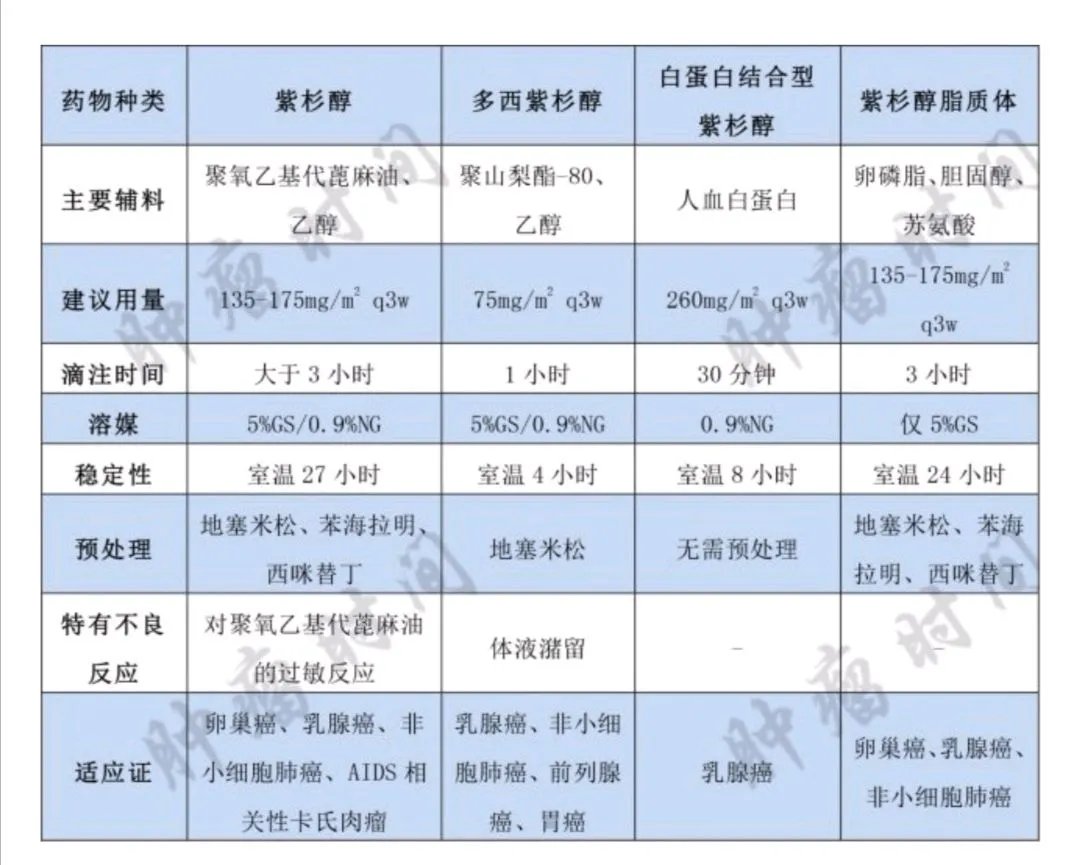 药物种类 紫杉醇 多西紫杉醇 白蛋白结合型紫杉醇 紫杉醇脂质体
主要辅料 聚氧乙基代蓖麻油、乙醇 聚山梨酯-80、乙醇 人血白蛋白 卵磷脂、胆固醇、苏氨酸
建议用量 135-175mg/m² q3w 75mg/m² q3w 260mg/m² q3w 135-175mg/m² q3w
滴注时间 大于3小时 1小时 30分钟 3小时
溶媒 5%GS/0.9%NG 5%GS/0.9%NG 0.9%NG 仅5%GS
稳定性 室温27小时 室温4小时 室温8小时 室温24小时
预处理 地塞米松、苯海拉明、西咪替丁 地塞米松 无需预处理 地塞米松、苯海拉明、西咪替丁
特有不良反应 对聚氧乙基代蓖麻油的过敏反应 体液潴留 – –
适应证 卵巢癌、乳腺癌、非小细胞肺癌、AIDS相关性卡氏肉瘤 乳腺癌、非小细胞肺癌、前列腺癌、胃癌 乳腺癌 卵巢癌、乳腺癌、非小细胞肺癌
肿瘤时间
肿瘤时间
肿瘤时间
肿瘤时间